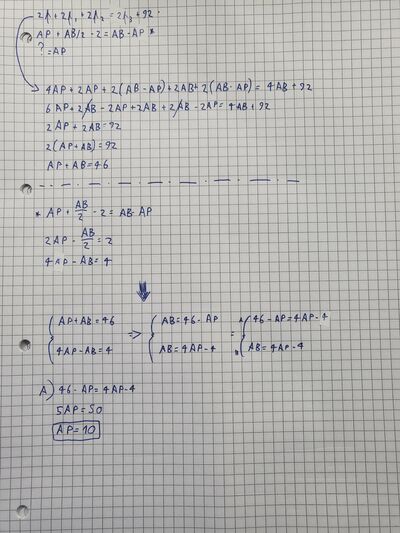 2p + 2p₁ + 2p₂ = 2p₃ + 92
AP + AB/2 - 2 = AB - AP *
? = AP
4AP + 2AP + 2(AB - AP) + 2AB + 2(AB - AP) = 4AB + 92
6AP + 2AB - 2AP + 2AB + 2AB - 2AP = 4AB + 92
2AP + 2AB = 92
2(AP + AB) = 92
AP + AB = 46
* AP + AB/2 - 2 = AB - AP
2AP - AB/2 = 2
4AP - AB = 4
{ AP + AB = 46 => { AB = 46 - AP = A { 46 - AP = 4AP - 4
{ 4AP - AB = 4 { AB = 4AP - 4 B { AB = 4AP - 4
A) 46 - AP = 4AP - 4
5AP = 50
AP = 10